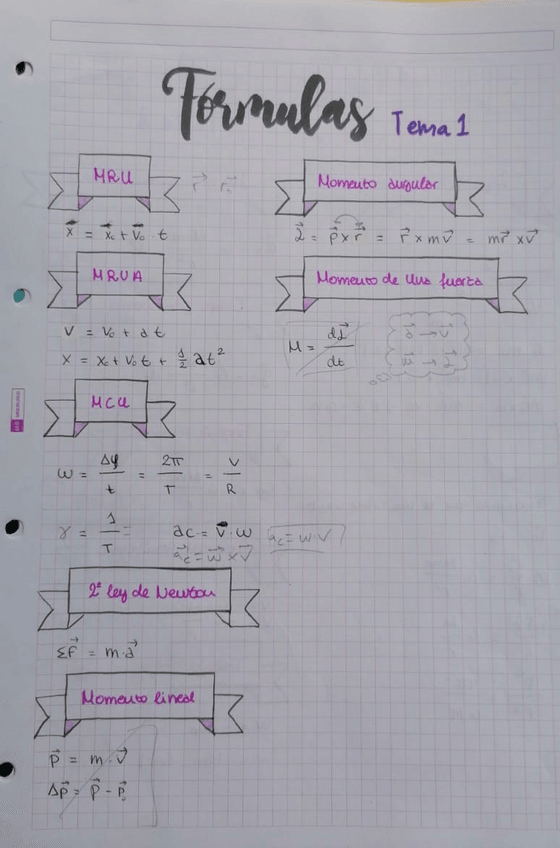 Fórmulas Tema 1
MRU
r⃗ r₀⃗
x⃗ = x⃗₀ + v⃗₀ · t
MRUA
v = v₀ + a t
x = x₀ + v₀ t + 1/2 a t²
MCU
ω = Δφ/t = 2π/T = v/R
γ = 1/T =
ac = v⃗ · ω
ac = ω · v
a⃗c = ω⃗ × v⃗
2ª ley de Newton
Σf⃗ = m · a⃗
Momento lineal
p⃗ = m · v⃗
Δp⃗ = p⃗ - p⃗₀
Momento angular
L⃗ = p⃗ × r⃗ = r⃗ × m v⃗ = m r⃗ × v⃗
Momento de una fuerza
M = dL⃗/dt
a⃗ → v⃗
M⃗ → L⃗